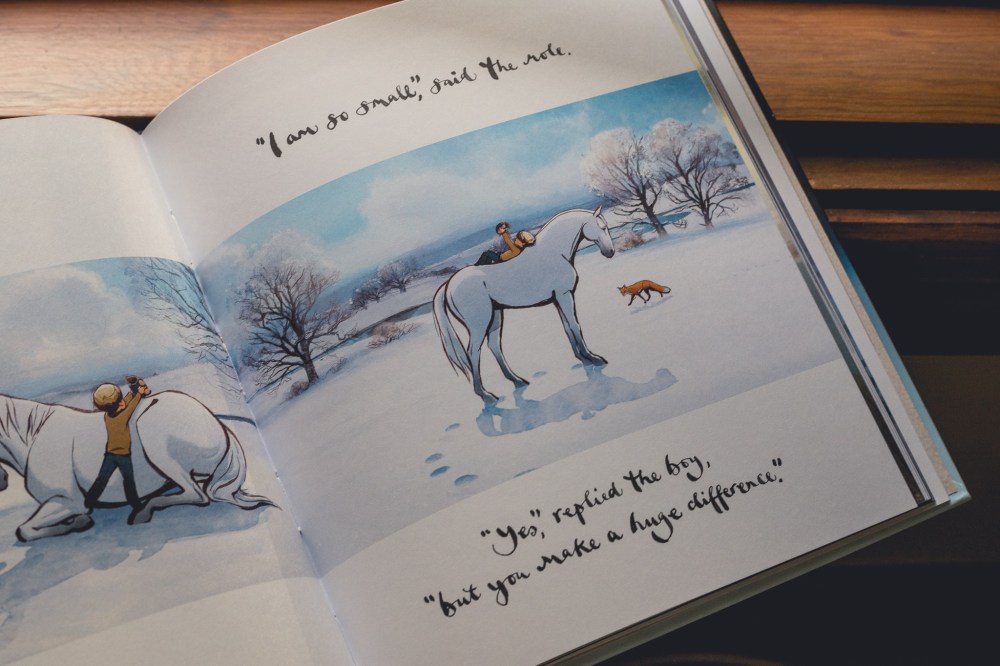 "I am so small", said the mole.
"Yes", replied the boy,
"but you make a huge difference."